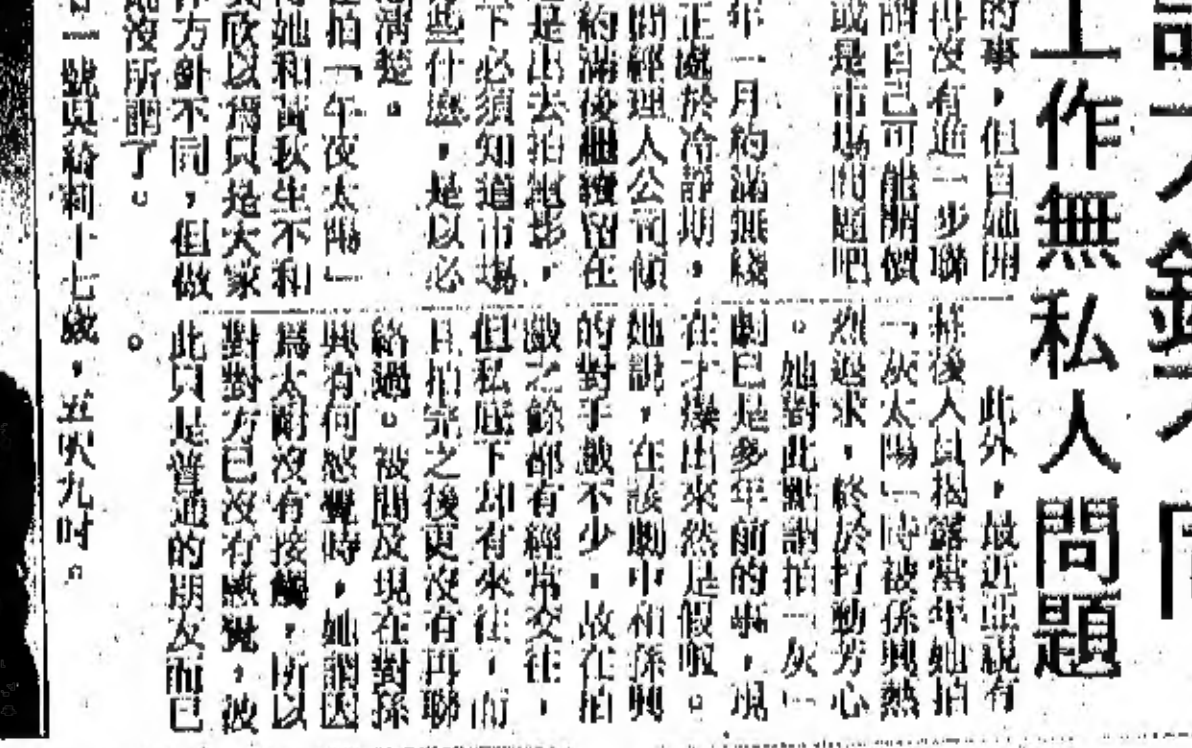 工作無私人問題
的事，但自她開
再沒有進一步聯
謂自己可能開價
或是市場問題吧
年一月約滿無綫
正處於冷靜期，
間經理人公司傾
約滿後繼續留在
是出去拍電影，
下必須知道市場
些什麼，是以必
清楚。
拍「午夜太陽」
她和黃秋生不和
欣以為只是大家
方針不同，但做
沒所謂了。
此外，最近電視有
祥後人員揭露當年她拍
「灰太陽」時被係興熱
烈追求，終於打動芳心
。她對此點謂拍「灰」
劇已是多年前的事，現
在才爆出來然是假啦。
她說，在該劇中和係興
的對手戲不少，故在拍
戲之餘都有經常交往，
但私底下却有來往，而
且拍完之後更沒有再聯
絡過。被問及現在對孫
興有何感覺時，她謂因
為太耐沒有接觸，所以
對對方已沒有感覺，被
此只是普通的朋友而已
。
一號與綺莉十七歲，五呎九吋。